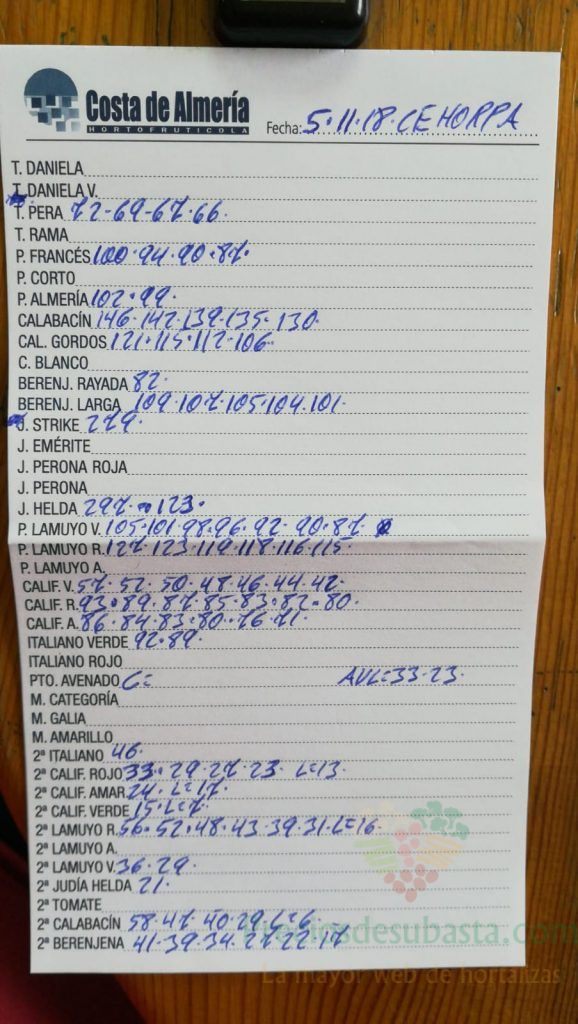 Costa de Almería
HORTOFRUTICOLA
Fecha: 5·11·18·CEHORPA
T. DANIELA
T. DANIELA V.
T. PERA 72-69-67·66·
T. RAMA
P. FRANCÉS 100·94·90·87·
P. CORTO
P. ALMERÍA 102·99·
CALABACÍN 146·142·139·135·130·
CAL. GORDOS 121·115·112·106·
C. BLANCO
BERENJ. RAYADA 82·
BERENJ. LARGA 109·107·105·104·101·
J. STRIKE 279·
J. EMÉRITE
J. PERONA ROJA
J. PERONA
J. HELDA 297· 123·
P. LAMUYO V. 105·101·98·96·92·90·87·
P. LAMUYO R. 127·123·119·118·116·115·
P. LAMUYO A.
CALIF. V. 57·52·50·48·46·44·42·
CALIF. R. 93·89·87·85·83·82·80·
CALIF. A. 86·84·83·80·76·71·
ITALIANO VERDE 92·89·
ITALIANO ROJO
PTO. AVENADO C= AVL=33·23·
M. CATEGORÍA
M. GALIA
M. AMARILLO
2ª ITALIANO 46·
2ª CALIF. ROJO 33·29·27·23 L=13·
2ª CALIF. AMAR. 24· L=17·
2ª CALIF. VERDE 15·L=7·
2ª LAMUYO R. 56·52·48·43·39·31·L=16·
2ª LAMUYO A.
2ª LAMUYO V. 36·29·
2ª JUDÍA HELDA 21·
2ª TOMATE
2ª CALABACÍN 58·47·40·29·L=6·
2ª BERENJENA 41·39·34·27·22·17
Preciosdesubasta.com
La mayor web de hortalizas